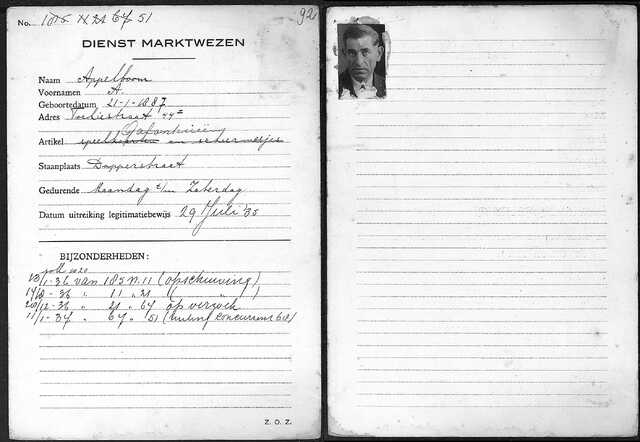 No. 105 11 21 67 51
92
DIENST MARKTWEZEN
Naam Appelboom
Voornamen A.
Geboortedatum 21-1-1887
Adres
Galanterieën
Artikel en scheermesjes
Staanplaats Dapperstraat
Gedurende Maandag t/m Zaterdag
Datum uitreiking legitimatiebewijs 29 Juli '35
BIJZONDERHEDEN:
1-36 van 185 n. 11 (opschuiving)
-36 " 11 " 21 ( " )
20/12-36 " 21 " 67 op verzoek
11/1-37 " 67 " 51 (ruiling concurrent 68)
Z. O. Z.